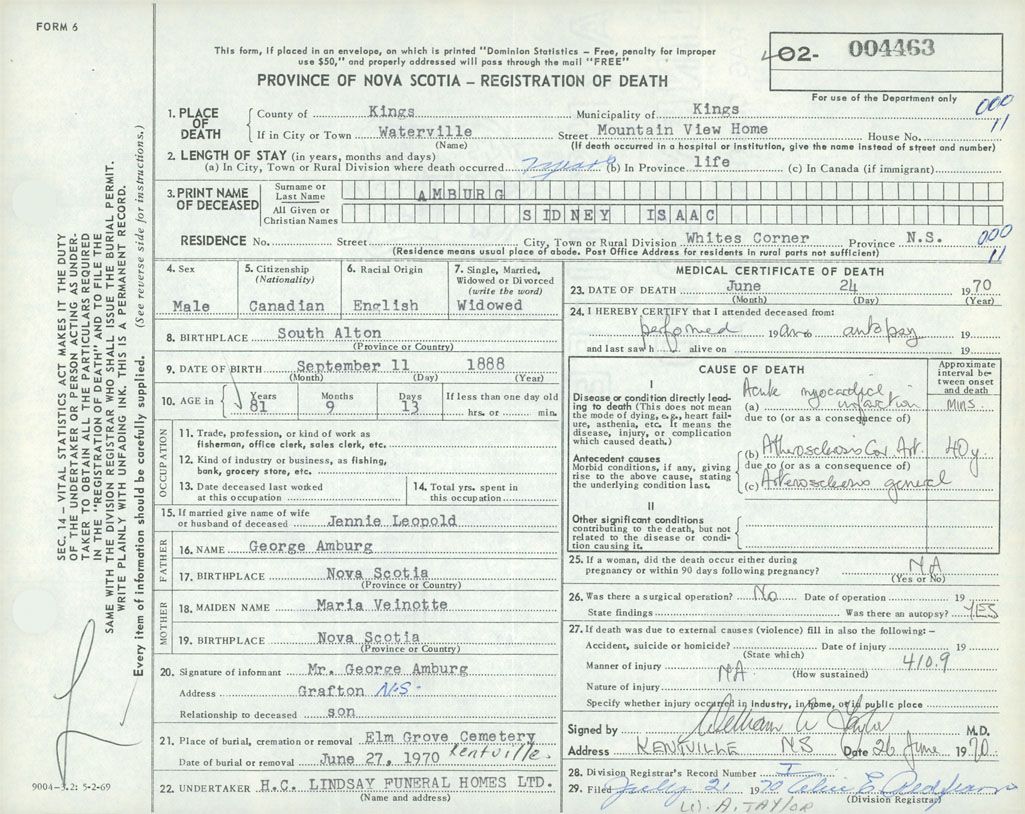 FORM 6
This form, if placed in an envelope, on which is printed "Dominion Statistics – Free, penalty for improper
use $50," and properly addressed will pass through the mail "FREE"
02- 004463
For use of the Department only
PROVINCE OF NOVA SCOTIA – REGISTRATION OF DEATH
000
11
1. PLACE OF DEATH
County of Kings Municipality of Kings
If in City or Town Waterville Street Mountain View Home House No.
(Name) (If death occurred in a hospital or institution, give the name instead of street and number)
2. LENGTH OF STAY (in years, months and days)
(a) In City, Town or Rural Division where death occurred 7 years (b) In Province life (c) In Canada (if immigrant)
3. PRINT NAME OF DECEASED
Surname or Last Name AMBURG
All Given or Christian Names SIDNEY ISAAC
RESIDENCE No. Street City, Town or Rural Division Whites Corner Province N.S.
000
11
(Residence means usual place of abode. Post Office Address for residents in rural parts not sufficient)
4. Sex
Male
5. Citizenship
(Nationality)
Canadian
6. Racial Origin
English
7. Single, Married,
Widowed or Divorced
(write the word)
Widowed
8. BIRTHPLACE South Alton
(Province or Country)
9. DATE OF BIRTH September 11 1888
(Month) (Day) (Year)
10. AGE in Years Months Days If less than one day old
81 9 13 hrs. or min.
OCCUPATION
11. Trade, profession, or kind of work as
fisherman, office clerk, sales clerk, etc.
12. Kind of industry or business, as fishing,
bank, grocery store, etc.
13. Date deceased last worked
at this occupation
14. Total yrs. spent in
this occupation
15. If married give name of wife
or husband of deceased Jennie Leopold
FATHER
16. NAME George Amburg
17. BIRTHPLACE Nova Scotia
(Province or Country)
MOTHER
18. MAIDEN NAME Maria Veinotte
19. BIRTHPLACE Nova Scotia
(Province or Country)
20. Signature of informant Mr. George Amburg
Address Grafton N.S.
Relationship to deceased son
21. Place of burial, cremation or removal Elm Grove Cemetery
Kentville.
Date of burial or removal June 27, 1970
22. UNDERTAKER H.C. LINDSAY FUNERAL HOMES LTD.
(Name and address)
MEDICAL CERTIFICATE OF DEATH
23. DATE OF DEATH June 24 1970
(Month) (Day) (Year)
24. I HEREBY CERTIFY that I attended deceased from:
performed 19 an autopsy 19
and last saw h alive on 19
CAUSE OF DEATH
Approximate
interval be-
tween onset
and death
I
Disease or condition directly lead-
ing to death (This does not mean
the mode of dying, e.g., heart fail-
ure, asthenia, etc. It means the
disease, injury, or complication
which caused death.)
(a) Acute myocardial infarction MINS
due to (or as a consequence of)
Antecedent causes
Morbid conditions, if any, giving
rise to the above cause, stating
the underlying condition last.
(b) Atherosclerosis Cor Art. 40 y
due to (or as a consequence of)
(c) Arterosclerosis general
II
Other significant conditions
contributing to the death, but not
related to the disease or condi-
tion causing it.
25. If a woman, did the death occur either during
pregnancy or within 90 days following pregnancy? NA
(Yes or No)
26. Was there a surgical operation? No Date of operation 19
State findings Was there an autopsy? YES
27. If death was due to external causes (violence) fill in also the following: –
Accident, suicide or homicide? Date of injury 19
(State which) 410.9
Manner of injury NA (How sustained)
Nature of injury
Specify whether injury occurred in industry, in home, or in public place
Signed by William A Taylor M.D.
Address KENTVILLE NS Date 26 June 1970
28. Division Registrar's Record Number I
29. Filed July 21 1970
(Division Registrar)
W. A. TAYLOR
SEC. 14 – VITAL STATISTICS ACT MAKES IT THE DUTY
OF THE UNDERTAKER OR PERSON ACTING AS UNDER-
TAKER TO OBTAIN ALL THE PARTICULARS REQUIRED
IN THE "REGISTRATION OF DEATH" AND TO FILE THE
SAME WITH THE DIVISION REGISTRAR WHO SHALL ISSUE THE BURIAL PERMIT.
WRITE PLAINLY WITH UNFADING INK. THIS IS A PERMANENT RECORD.
Every item of information should be carefully supplied. (See reverse side for instructions.)
9004-3.2: 5-2-69